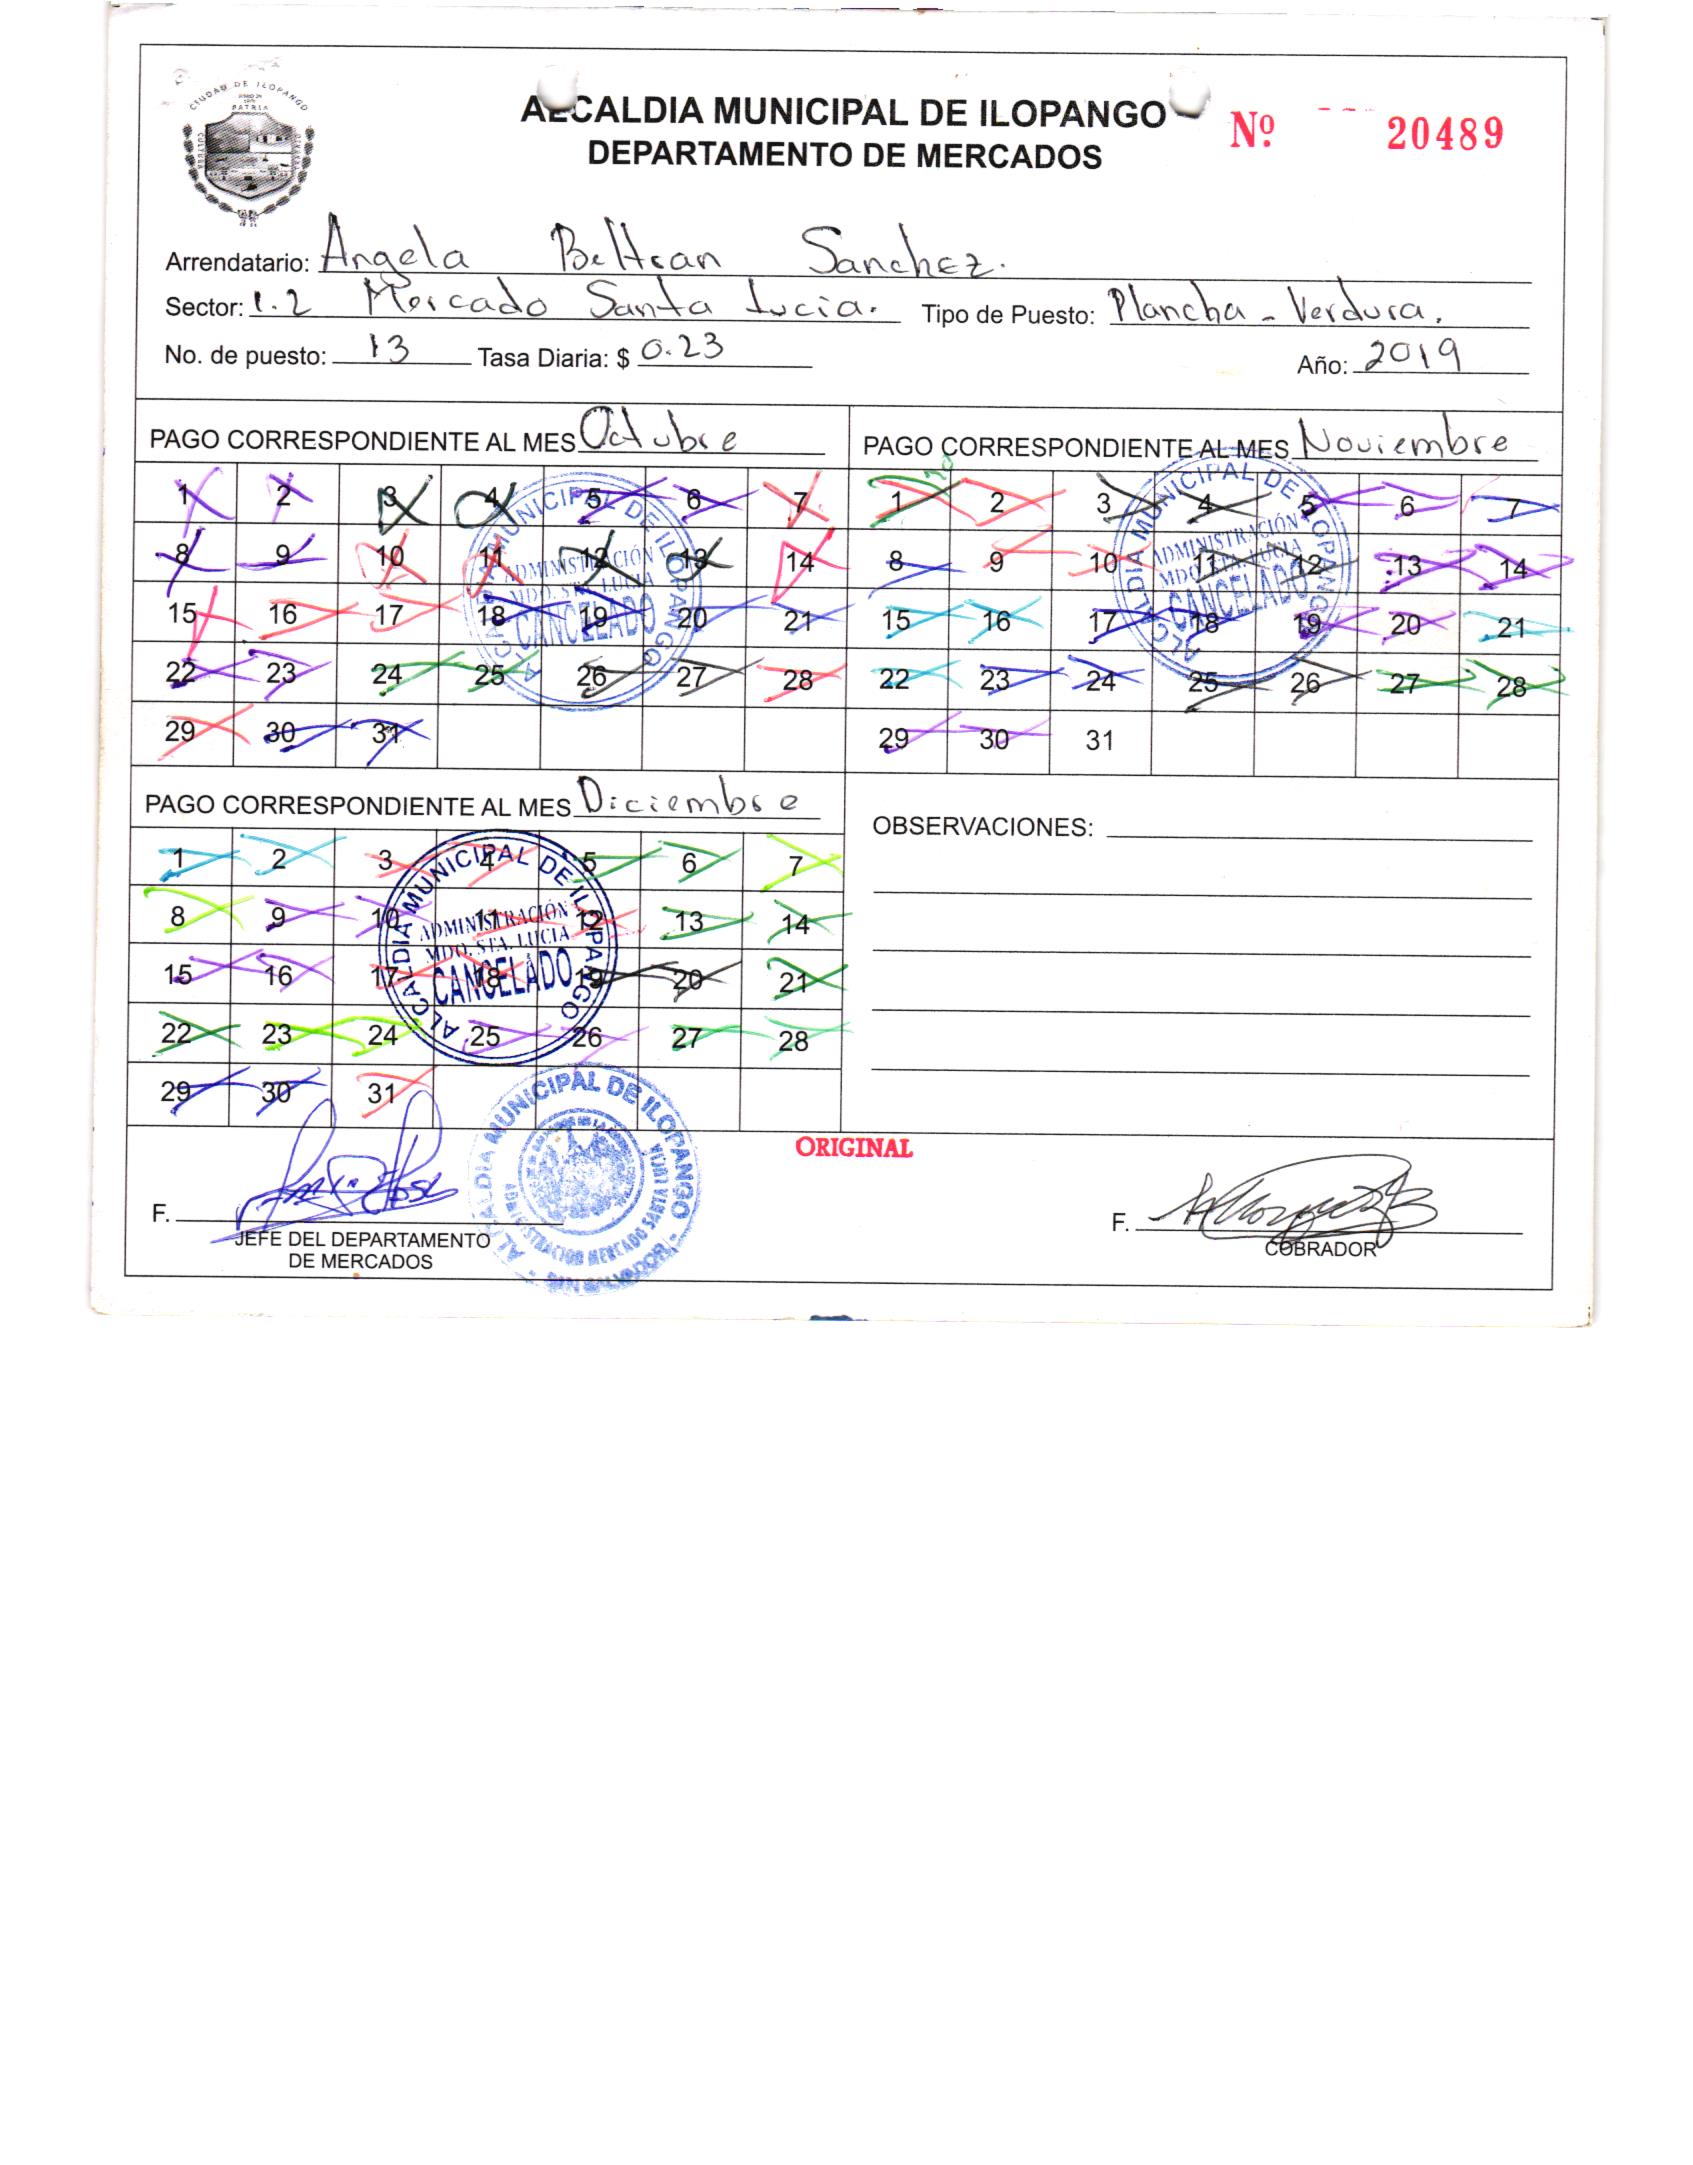 CIUDAD DE ILOPANGO
PATRIA
CULTURA
ALCALDIA MUNICIPAL DE ILOPANGO
DEPARTAMENTO DE MERCADOS
Nº 20489
Arrendatario: Angela Beltran Sanchez.
Sector: 1.2 Mercado Santa Lucia. Tipo de Puesto: Plancha - Verdura.
No. de puesto: 13 Tasa Diaria: $ 0.23 Año: 2019
PAGO CORRESPONDIENTE AL MES Octubre
1 2 3 4 5 6 7
8 9 10 11 12 13 14
15 16 17 18 19 20 21
22 23 24 25 26 27 28
29 30 31
ALCALDIA MUNICIPAL DE ILOPANGO
ADMINISTRACIÓN
MDO. STA. LUCIA
CANCELADO
PAGO CORRESPONDIENTE AL MES Noviembre
1 2 3 4 5 6 7
8 9 10 11 12 13 14
15 16 17 18 19 20 21
22 23 24 25 26 27 28
29 30 31
ALCALDIA MUNICIPAL DE ILOPANGO
ADMINISTRACIÓN
MDO. STA. LUCIA
CANCELADO
PAGO CORRESPONDIENTE AL MES Diciembre
1 2 3 4 5 6 7
8 9 10 11 12 13 14
15 16 17 18 19 20 21
22 23 24 25 26 27 28
29 30 31
ALCALDIA MUNICIPAL DE ILOPANGO
ADMINISTRACIÓN
MDO. STA. LUCIA
CANCELADO
OBSERVACIONES:
ORIGINAL
F.
JEFE DEL DEPARTAMENTO
DE MERCADOS
ALCALDIA MUNICIPAL DE ILOPANGO
ADMINISTRACION MERCADO SANTA LUCIA
SAN SALVADOR
F.
COBRADOR